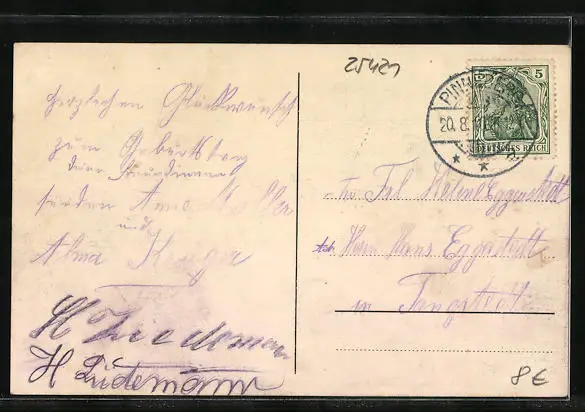 25421
Herzlichen Glückwunsch
zum Geburtstag
deine Freundinnen
senden Anne Köller
und
Alma Krüger
H Lüdemann
H Lüdemann
PINNEBERG
20.8.
5
DEUTSCHES REICH
Frl Helene Eggerstedt
Herrn Hans Eggerstedt
in Tangstedt
8€